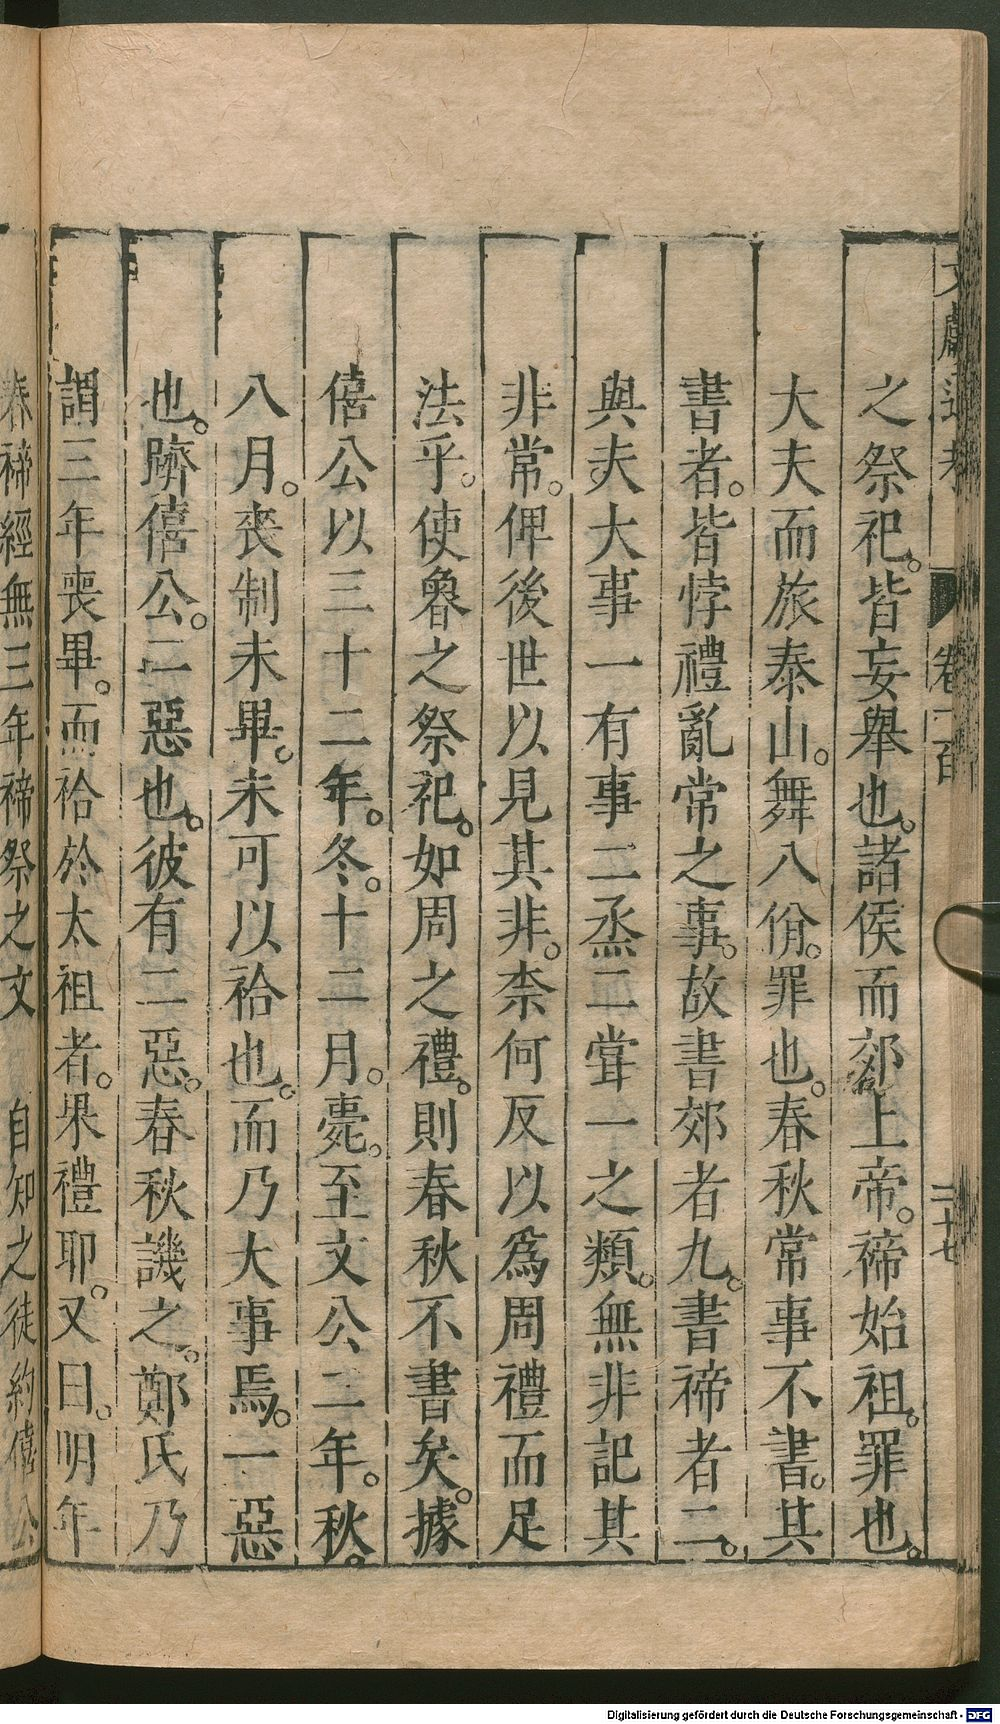 文獻通考 卷一百 二十七
之祭祀。皆妄舉也。諸侯而郊上帝。禘始祖。罪也。
大夫而旅泰山。舞八佾。罪也。春秋常事不書。其
書者。皆悖禮亂常之事。故書郊者九。書禘者二。
與夫大事一有事二烝二甞一之類。無非記其
非常。俾後世以見其非。柰何反以爲周禮而足
法乎。使魯之祭祀。如周之禮。則春秋不書矣。據
僖公以三十二年。冬。十二月。薨。至文公二年。秋。
八月。喪制未畢。未可以祫也。而乃大事焉。一惡
也。躋僖公。二惡也。彼有二惡。春秋譏之。鄭氏乃
謂三年喪畢。而祫於太祖者。果禮耶。又曰。明年
春禘經無三年禘祭之文 自知之徒約僖公
Digitalisierung gefördert durch die Deutsche Forschungsgemeinschaft - DFG